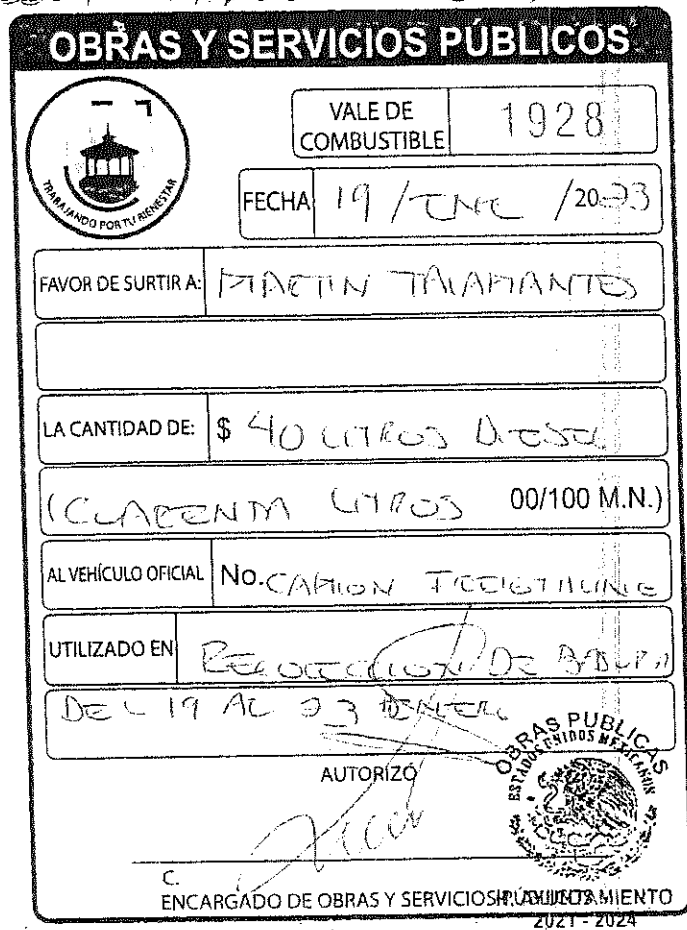 OBRAS Y SERVICIOS PÚBLICOS
TRABAJANDO POR TU BIENESTAR
VALE DE COMBUSTIBLE 1928
FECHA 19 / ENE / 2023
FAVOR DE SURTIR A: MARTIN TALAMANTES
LA CANTIDAD DE: $ 40 LITROS DIESEL
(CUARENTA LITROS 00/100 M.N.)
AL VEHÍCULO OFICIAL No. CAMION
UTILIZADO EN RECOLECCION DE BASURA
DEL 19 AL 23 ENERO
AUTORIZÓ
OBRAS PUBLICAS
ESTADOS UNIDOS MEXICANOS
C.
ENCARGADO DE OBRAS Y SERVICIOS PÚBLICOS
H. AYUNTAMIENTO
2021 - 2024